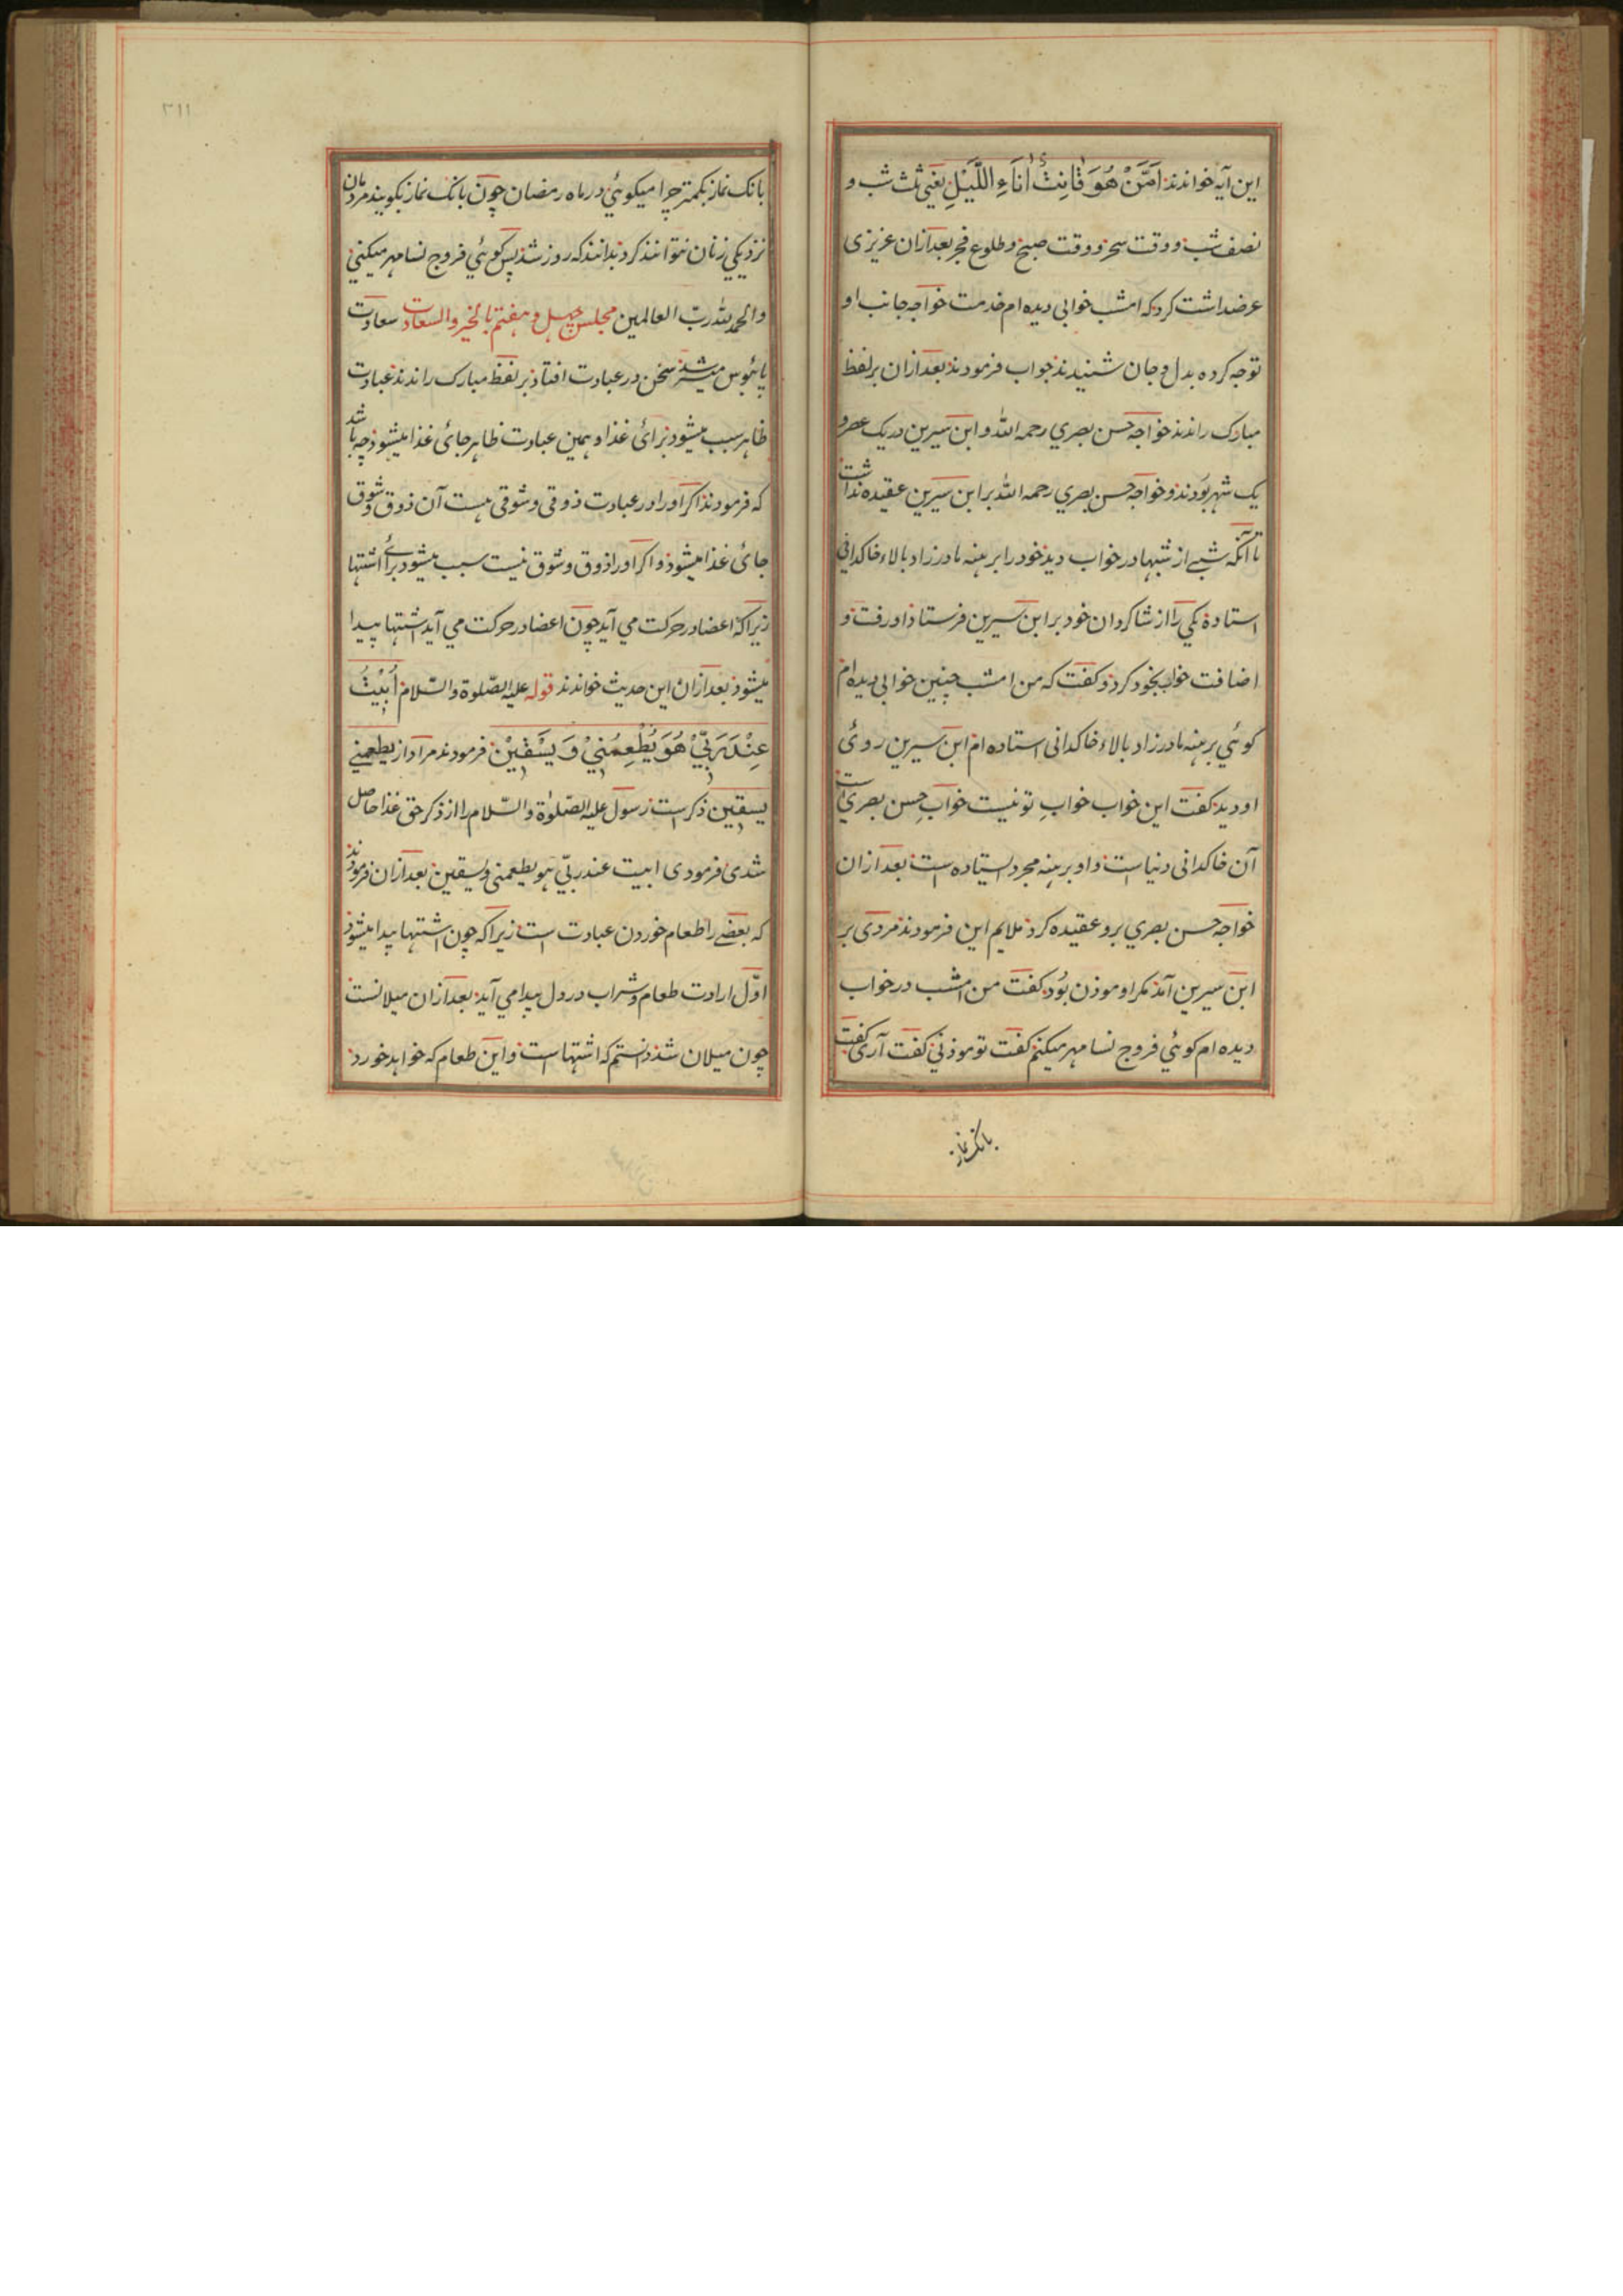 این آیه خواندند اَمَّنْ هُوَ قَانِتٌ اٰنَاءَ اللَّیْلِ یعنی ثلث شب و
نصف شب و وقت سحر و وقت صبح و طلوع فجر بعد ازان عزیزی
عرضداشت کرد که امشب خوابی دیده ام خدمت خواجه جانب او
توجه کرده بدل و جان شنیدند جواب فرمودند بعد ازان بر لفظ
مبارک راندند خواجه حسن بصری رحمه الله و ابن سیرین در یک عصر و
یک شهر بودند و خواجه حسن بصری رحمه الله بر ابن سیرین عقیده نداشت
تا آنکه شبے از شبها در خواب دید خود را برهنه مادرزاد بالاء خاکدانی
استاده یکی را از شاکردان خود بر ابن سیرین فرستاد او رفت و
اضافت خواب بخود کرد و کفت که من امشب چنین خوابی دیده ام
کوئی برهنه مادرزاد بالاء خاکدانی استاده ام ابن سیرین روئ
او دید کفت این خواب خوابِ تو نیست خواب حسن بصری است
آن خاکدانی دنیا است و او برهنه مجرد ایستاده است بعد ازان
خواجه حسن بصری برو عقیده کرد ملایم این فرمودند مردی بر
ابن سیرین آمد مکر او موذن بُود کفت من امشب در خواب
دیده ام کوئی فروج نسا مهر میکنم کفت تو موذنی کفت آری کفت
بانک نماز
۳۱۱
بانک نماز بکمتر چرا میکوئی در ماه رمضان چون بانک نماز بکویند مردمان
نزدیکی زنان نتوانند کرد بدانند که روز شد پس کوئی فروج نسا مهر میکنی
والحمد لله ربّ العالمین مجلس چهل و هفتم بالخیر والسعادت سعادت
پائبوس میسر شد سخن در عبادت افتاد بر لفظ مبارک راندند عبادت
ظاهر سبب میشود برائ غذا و همین عبادت ظاهر جائ غذا میشود چه باشد
که فرمودند اکر او را در عبادت ذوقی و شوقی هست آن ذوق و شوق
جائ غذا میشود و اکر او را ذوق و شوق نیست سبب میشود برائے اشتها
زیرا که اعضا در حرکت می آید چون اعضا در حرکت می آید اشتها پیدا
میشود بعد ازان این حدیث خواندند قوله علیه الصّلوة والسّلام اُبِیْتُ
عِنْدَ رَبِّیْ هُوَ یُطْعِمُنِیْ وَ یَسْقِیْنِ فرمودند مراد از یطعمنی
یسقین ذکر است رسول علیه الصّلوٰة والسّلام را از ذکر حق غذا حاصل
شدی فرمودی ابیت عند ربّی هو یطعمنی و یسقین بعد ازان فرمودند
که بعضے را طعام خوردن عبادت است زیرا که چون اشتها پیدا میشود
اوّل ارادت طعام و شراب در دل پیدا می آید بعد ازان میلانست
چون میلان شد دانستم که اشتها است و این طعام که خواهد خورد